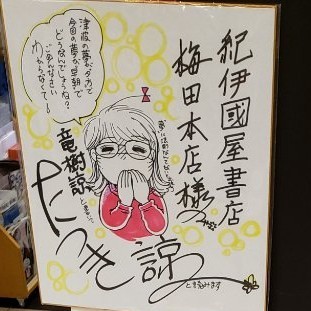 紀伊國屋書店
梅田本店様
津波の夢がダカで
どうなんでしょうね?
今回の夢が早朝で
ごめんなさい
わからなくて〜
竜樹諒
たつき諒
と読みます